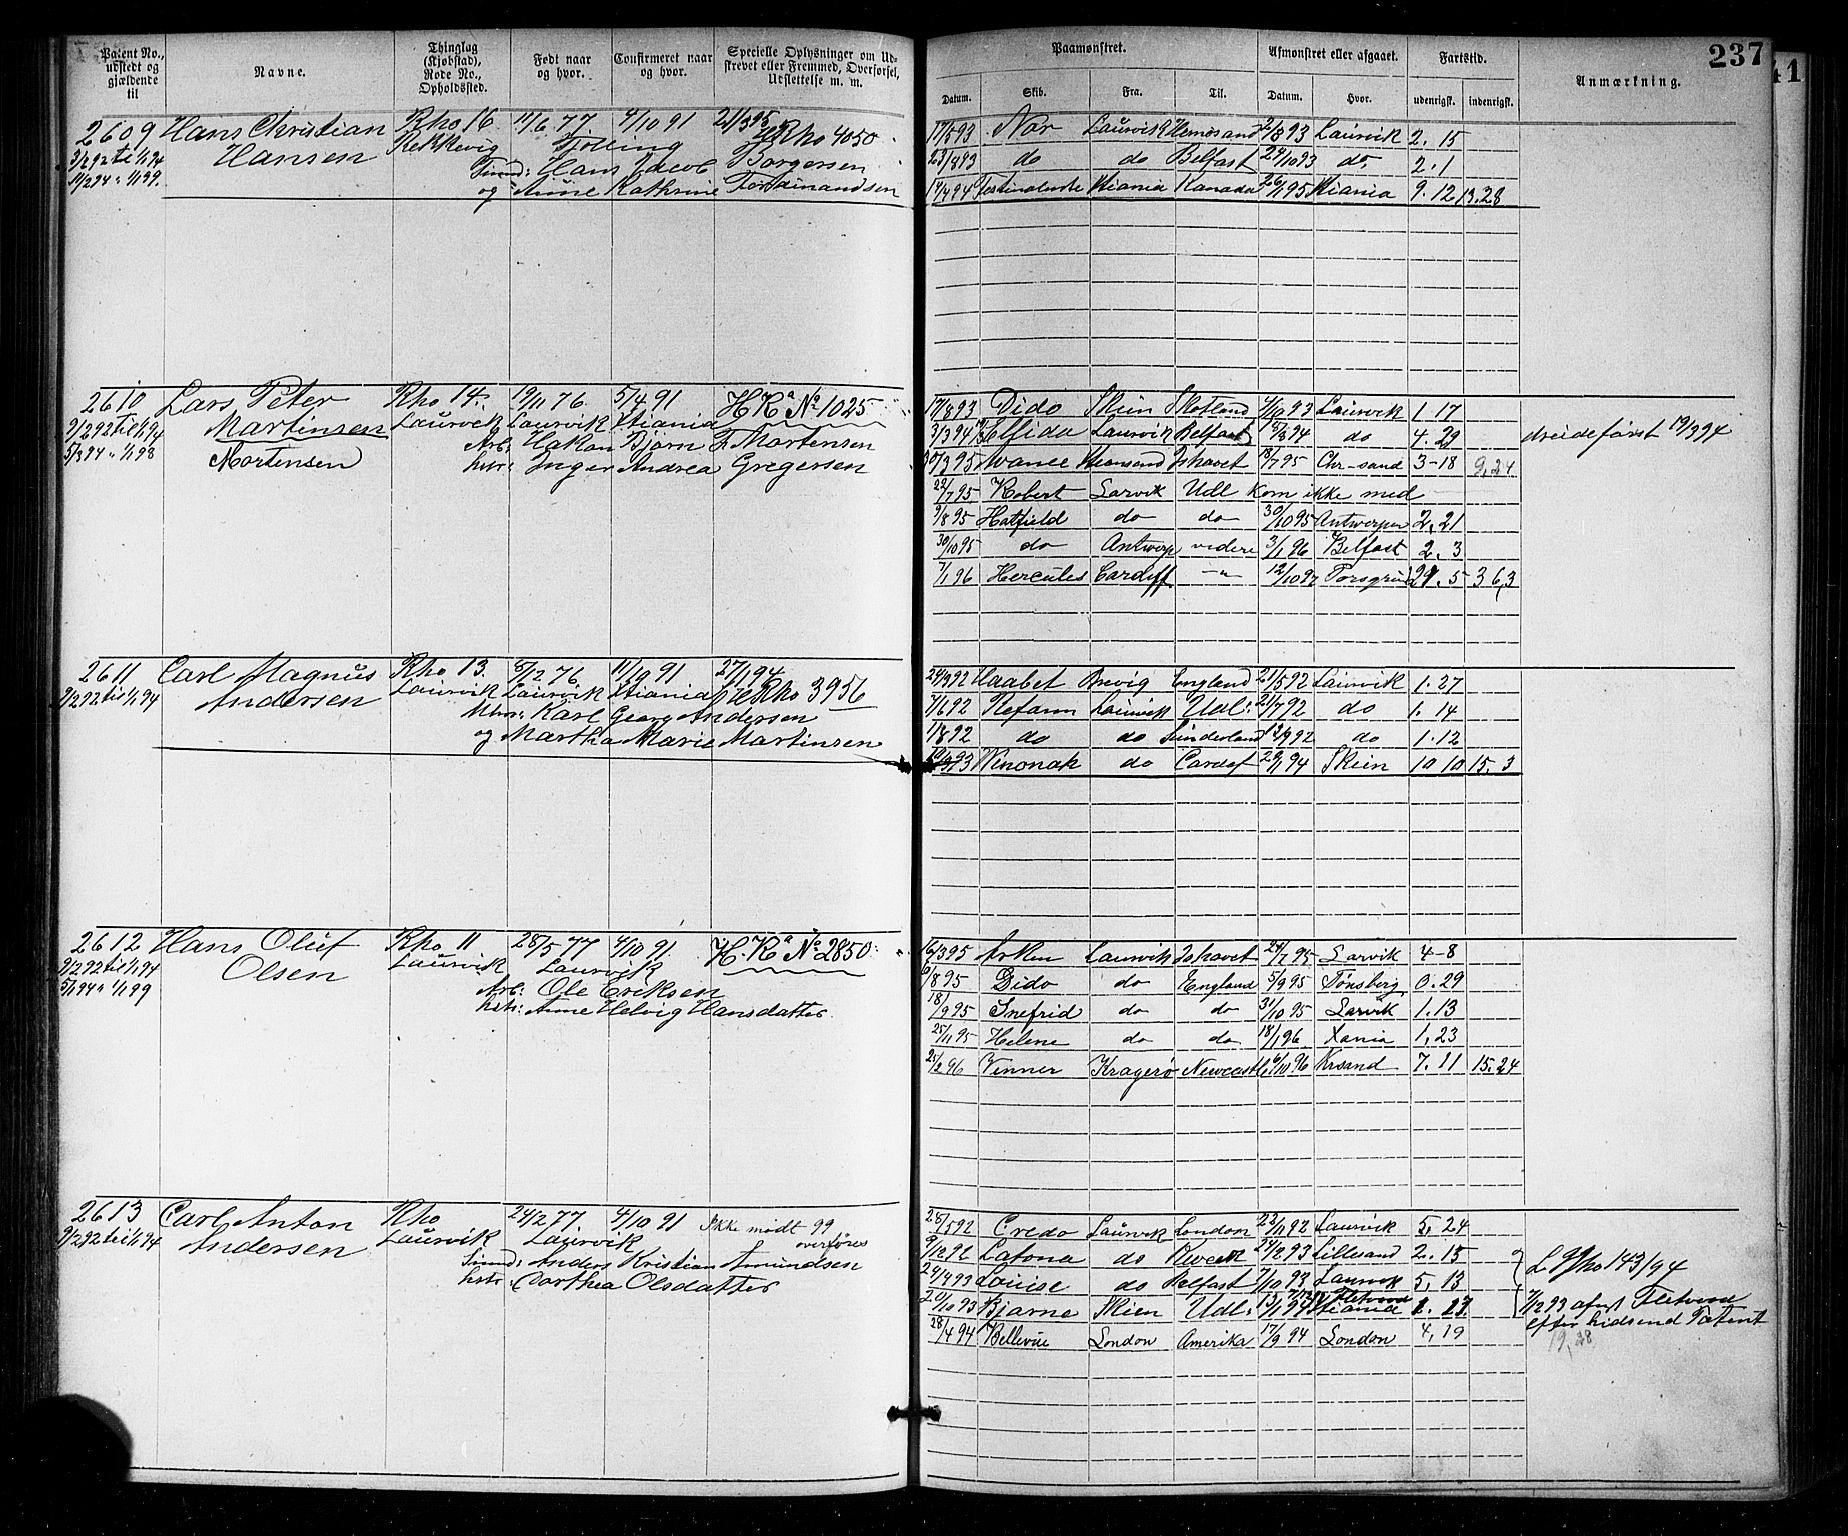 237
41
Patent No., udstedt og gjældende til
Navne.
Thinglag (Kjøbstad), Rode No., Opholdssted.
Født naar og hvor.
Confirmeret naar og hvor.
Specielle Oplysninger om Udskrevet eller Fremmed, Overførsel, Udslettelse m. m.
Paamønstret.
Afmønstret eller afgaaet.
Fartstid.
Anmærkning.
Datum. Skib. Fra. Til. Datum. Hvor. udenrigsk. indenrigsk.
2609 Hans Christian Rho 16 11/6 77. 4/10 91 21/3 95
Hansen Tjølling Rho 4050
3/2 92 til 1/1 94
14/2 94 " 1/1 99.
Hans Jacob Borgersen
og Anne Kathrine Ferdinandsen
17/5 93 Nor Laurvik Hernøsand 2/8 93 Laurvik 2. 15
23/8 93 do do Belfast 24/10 93 do. 2. 1
Kanada 26/1 95 9. 12 13.28
2610 Lars Peter Rho 14. 19/11 76. 5/4 91 H Ka No 1025
9/2 92 til 1/1 94 Martinsen Laurvik Laurvik Stiania
5/3 94 " 1/1 98 Mortensen
Arb: Hakon Bjørn F. Mortensen
hstr: Inger Andrea Gregersen
17/8 93 Dido Skien Skotland 4/10 93 Laurvik 1 17
3/3 94 Elfida Laurvik Belfast 8/8 94 do 4. 29
Ishavet 18/7 95 Chr-sand 3-18 9,24
22/7 95 Robert Larvik Udl kom ikke med
9/8 95 Hatfield do do 30/10 95 Antwerpen 2,21
30/10 95 do Antwerp videre 3/1 96 Belfast 2. 3
7/1 96 Hercules Cardiff -"- 12/10 97 Porsgrund 21. 5 36,3
2611 Carl Magnus Rho 13. 8/12 76 11/10 91 27/1 94
9/2 92 til 1/1 94 Andersen Laurvik Laurvik Stiania Rho 3956
Karl Georg Andersen
og Martha Marie Martinsen
24/3 92 Haabet Brevig England 21/5 92 Laurvik 1. 27
7/6 92 Laurvik Udl: 21/7 92 do 1. 14
1/8 92 do do Sunderland 12/9 92 do 1. 12
Winonah do Cardif 29/1 94 Skien 10 10 15. 3
2612 Hans Oluf Rho 11 28/5 77 4/10 91. H. Ka No 2850
9/2 92 til 1/1 94 Olsen Laurvik Laurvik
5/1 94 " 1/1 99
Arb: Ole Eriksen
hstr: Anne Helvig Hansdatter
16/3 95 Laurvik Ishavet 24/7 95 Larvik 4-8
6/8 95 Dido do England 5/9 95 Tønsberg 0.29
18/9 95 Snefrid do do 31/10 95 Larvik 1.13
25/11 95 Helene do do 18/1 96 Xania 1,23
25/2 96 Vinner Kragerø Newcastle 6/10 96 Krsand 7. 11 15.24
2613 Carl Anton Rho 24/2 77. 4/10 91 Ikke mødt 99
9/2 92 til 1/1 94 Andersen Laurvik Laurvik overføres
Anders Kristian Amundsen
hstr: Dorthea Olsdatter
28/5 92 Credo Laurvik London 22/11 92 Laurvik 5. 24
9/12 92 Latona do 24/2 93 Lillesand 2. 15
24/4 93 Louise do Belfast 7/10 93 Laurvik 5, 13
20/10 93 Bjarne Skien Udl: 13/1 94 Stiania 2. 23
28/4 94 Bellevue London Amerika 17/9 94 London 4, 19
efter hidsend Patent
19,28